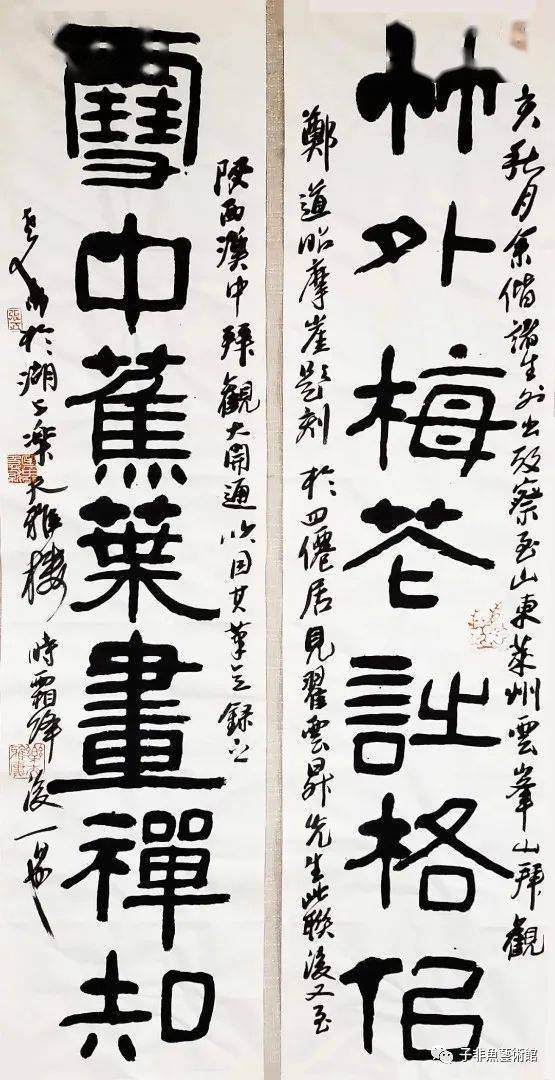 亥秋月余偕諸生外出攷察至山東萊州雲峯山拜觀
竹外梅花詩格佀
鄭道昭摩崖題刻於四僊居見翟雲昇先生此聯後又至
陝西漢中拜觀大開通以因其筆意錄之
雪中蕉葉畫禪知
於湖上大雅樓時霜降後一
子非魚藝術館